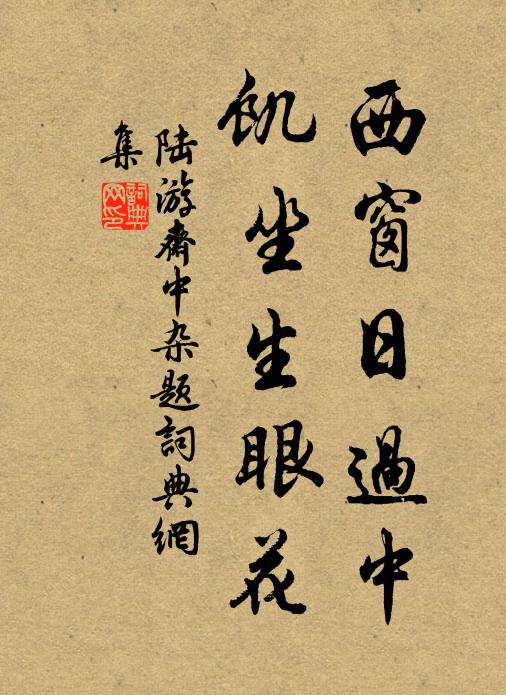 西窗日過中
飢坐生眼花
陆游齋中杂题詞典網
集
詞典
网印